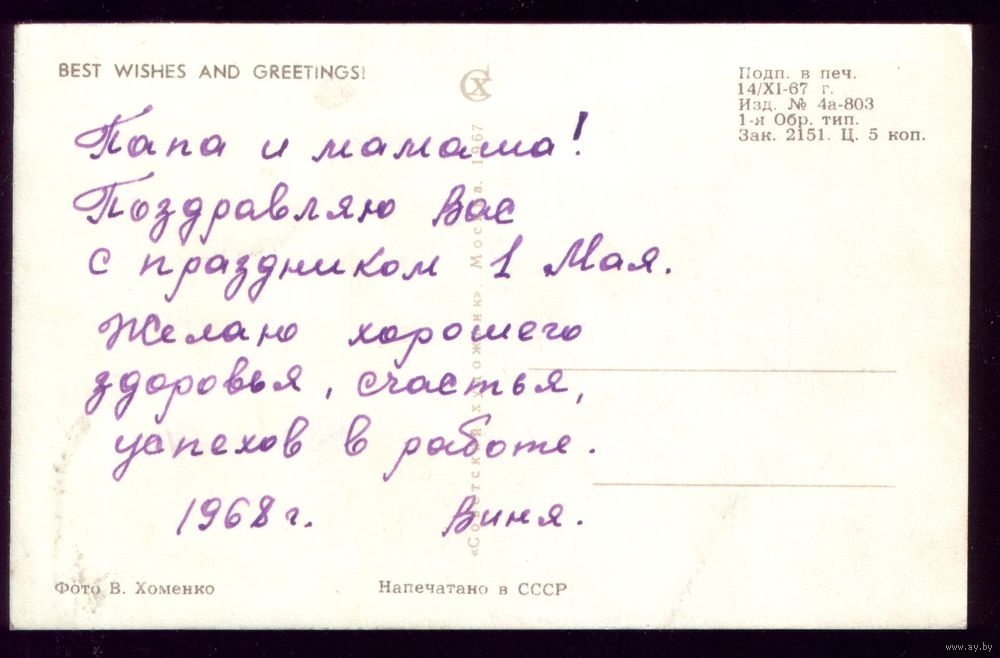 BEST WISHES AND GREETINGS!
СХ
Подп. в печ.
14/XI-67 г.
Изд. № 4а-803
1-я Обр. тип.
Зак. 2151. Ц. 5 коп.
Папа и мамаша!
Поздравляю Вас
с праздником 1 Мая.
Желаю хорошего
здоровья, счастья,
успехов в работе.
1968 г. Виня.
«Советский художник». Москва. 1967
Фото В. Хоменко
Напечатано в СССР
www.ay.by